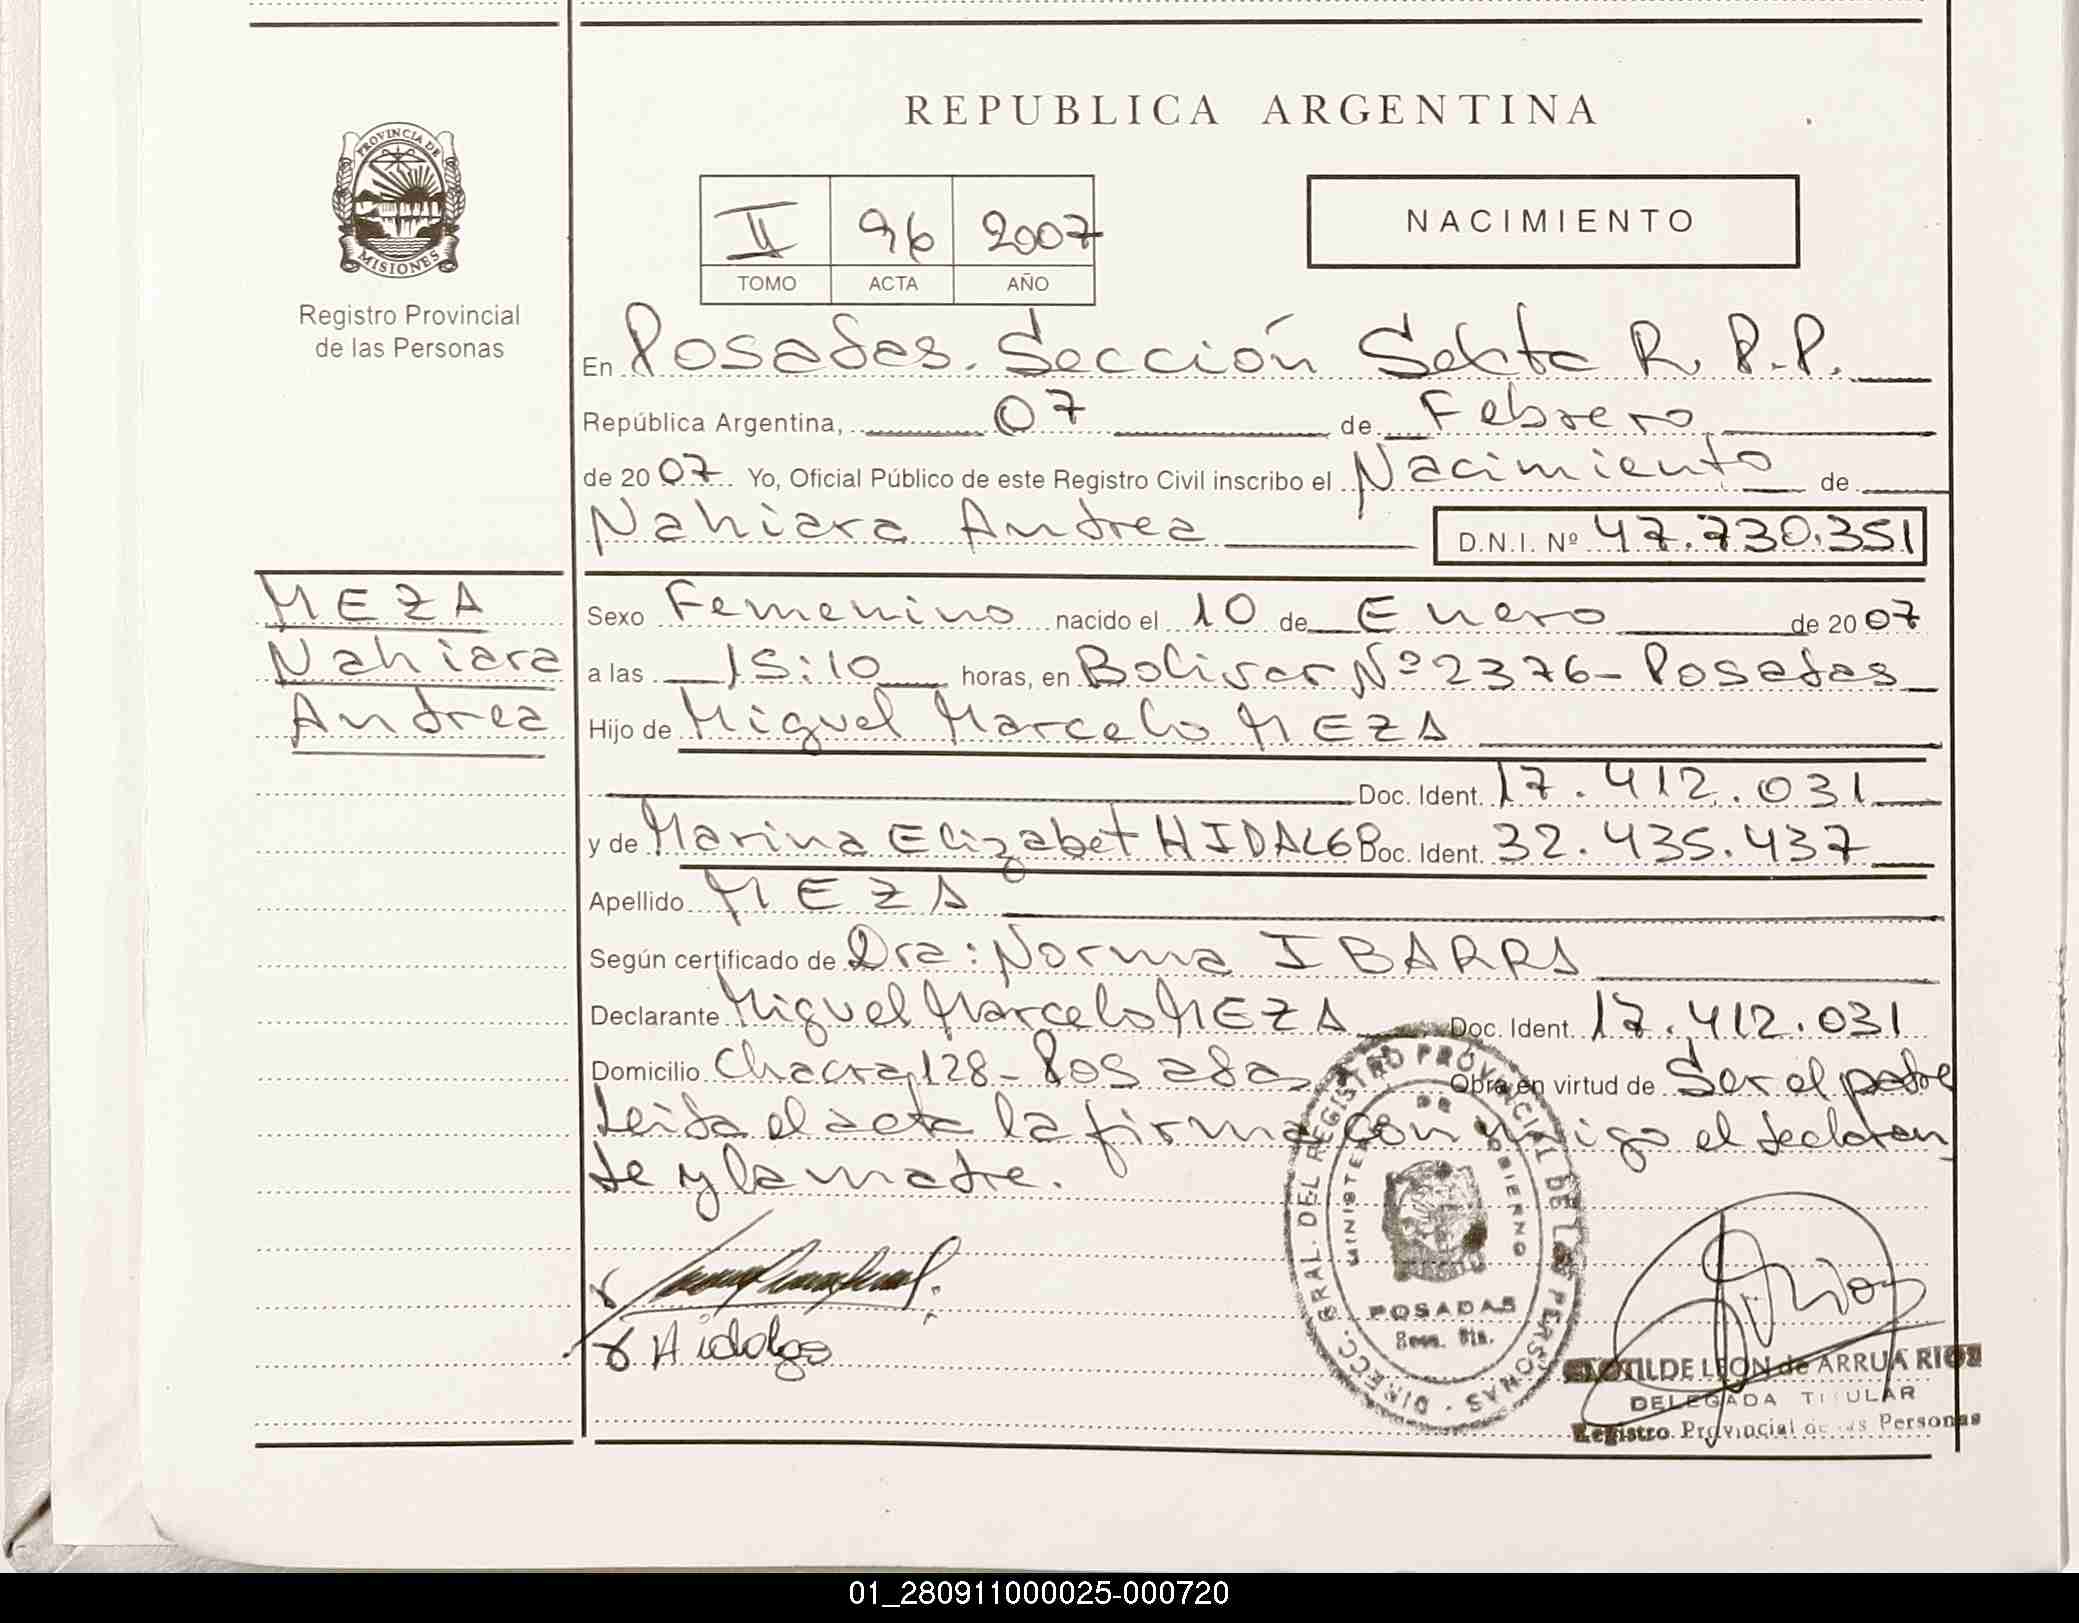 REPUBLICA ARGENTINA
PROVINCIA DE MISIONES
Registro Provincial
de las Personas
II 96 2007
TOMO ACTA AÑO
NACIMIENTO
En Posadas. Sección Sexta R.P.P.
República Argentina, 07 de Febrero
de 2007. Yo, Oficial Público de este Registro Civil inscribo el Nacimiento de
Nahiara Andrea D.N.I. Nº 47.730.351
MEZA
Nahiara
Andrea
Sexo Femenino nacido el 10 de Enero de 2007
a las 15:10 horas, en Bolivar Nº 2376- Posadas
Hijo de Miguel Marcelo MEZA
Doc. Ident. 17.412.031
y de Marina Elizabet HIDALGO Doc. Ident. 32.435.437
Apellido MEZA
Según certificado de Dra: Norma IBARRA
Declarante Miguel Marcelo MEZA Doc. Ident. 17.412.031
Domicilio Chacra 128- Posadas Obra en virtud de Ser el padre
Leida el acta la firma con migo el declaran
te y la madre.
Hidalgo
DIRECC. GRAL. DEL REGISTRO PROVINCIAL DE LAS PERSONAS
MINISTERIO DE GOBIERNO
POSADAS
CLOTILDE LEON de ARRUA RIOS
DELEGADA TITULAR
Registro Provincial de las Personas
01_280911000025-000720